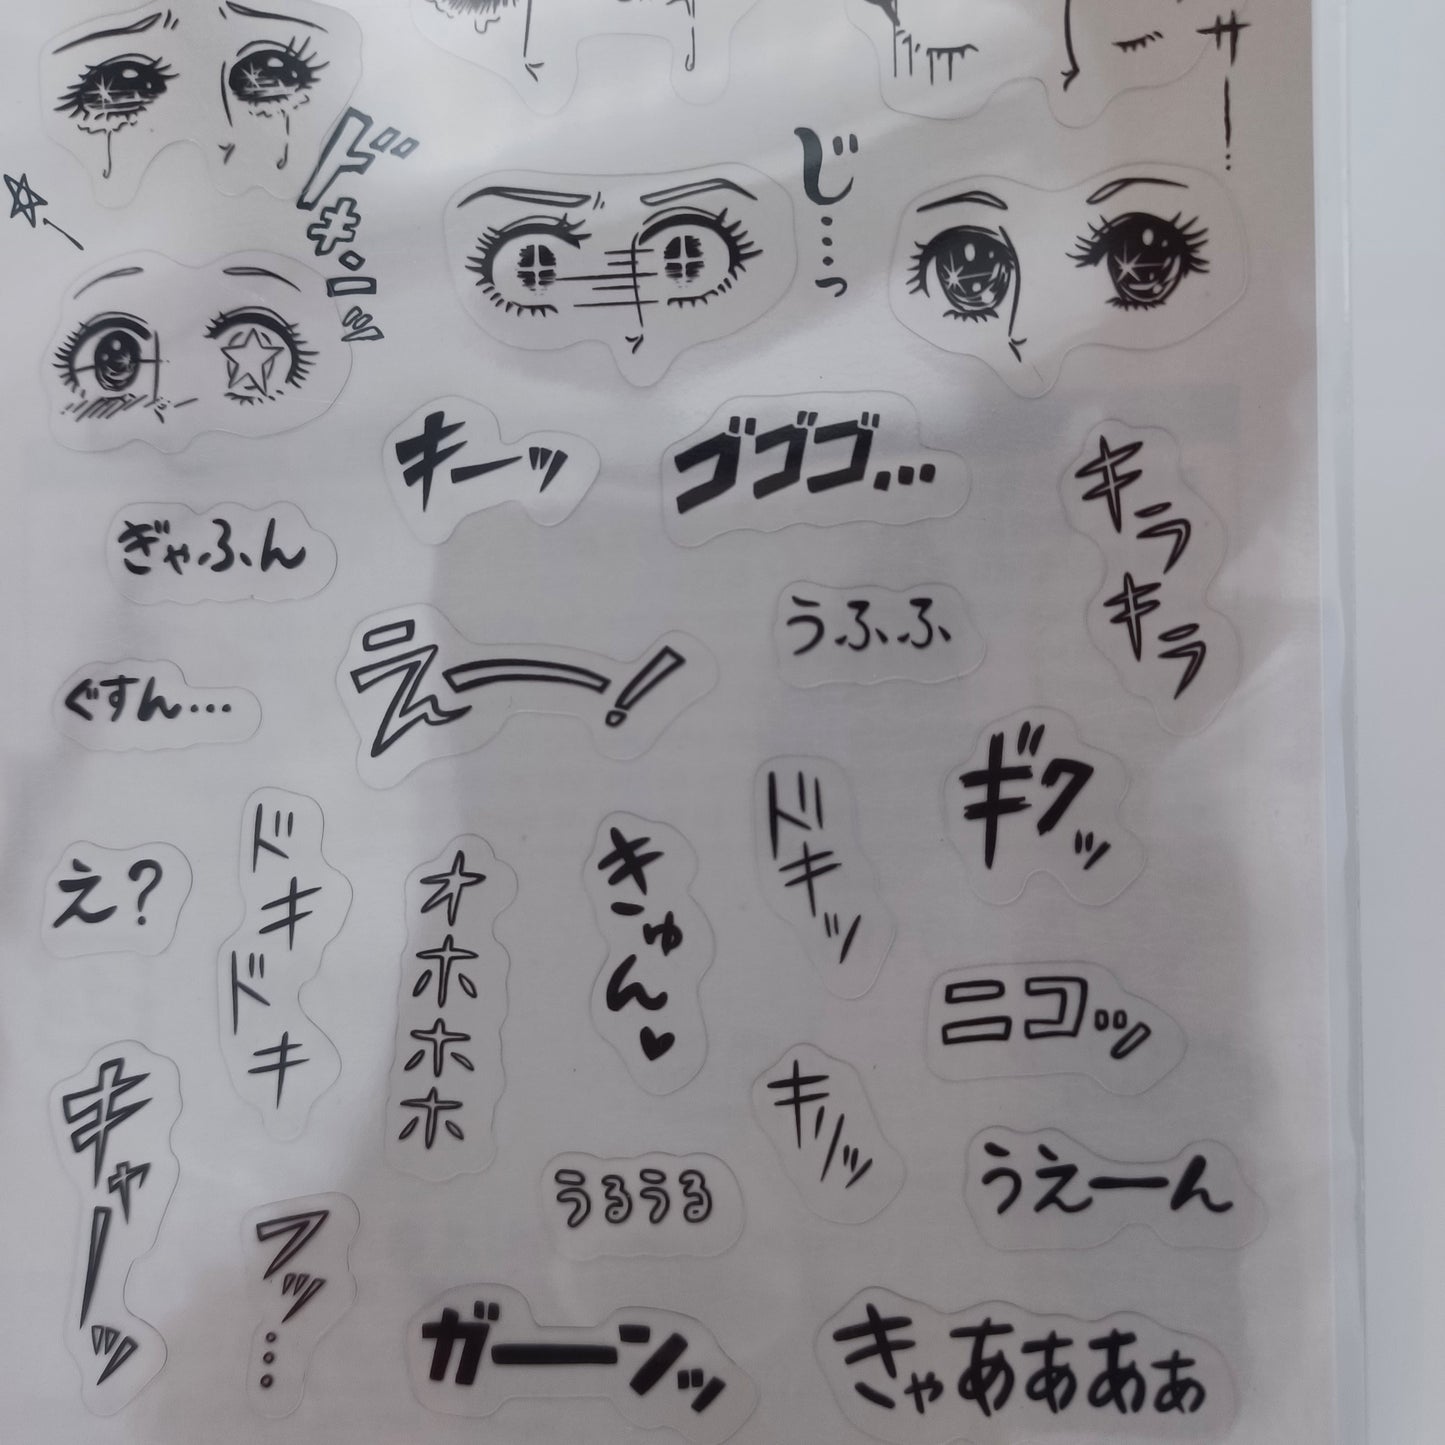 サー…
ドキーッ
じ…っ
キーッ
ゴゴゴ…
キラキラ
ぎゃふん
うふふ
えー!
ぐすん…
ギクッ
ドキッ
え?
ドキドキ
オホホホ
きゅん♥
ニコッ
キャーッ
キリッ
うえーん
うるうる
フッ…
ガーンッ
きゃあああぁ